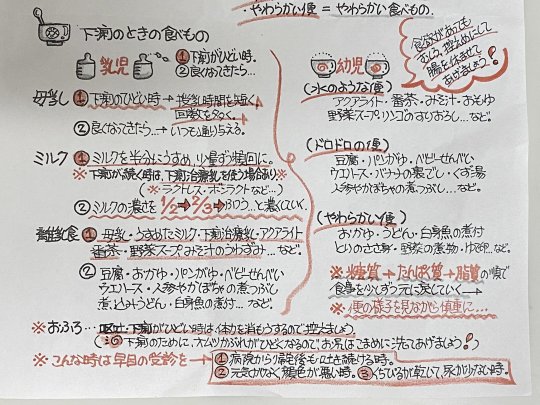 やわらかい便 = やわらかい食べもの.
下痢のときの食べもの
食欲があっても
むしろ、控えめにして
腸を休ませて
あげましょう!
乳児
①下痢がひどい時.
②良くなってきたら…
母乳
①下痢のひどい時→授乳時間を短く
回数を多く.
②良くなってきたら…→いつも通り与える.
ミルク
①ミルクを半分にうすめ,少量ずつ頻回に.
※下痢が続く時は,下痢治療乳を使う場合あり
(※ラクトレス・ボンラクトなど…)
②ミルクの濃さを1/2→2/3→ふつう…と濃くしていく.
離乳食
①母乳・うすめたミルク・下痢治療乳・アクアライト
番茶・野菜スープ・みそ汁のうわずみ…など.
②豆腐・おかゆ・パンがゆ・ベビーせんべい
ウエハース・人参やかぼちゃの煮つぶし
煮込みうどん・白身魚の煮付…など.
幼児
(水のような便)
アクアライト・番茶・みそ汁・おもゆ
野菜スープ・リンゴのすりおろし…など.
(ドロドロの便)
豆腐・パンがゆ・ベビーせんべい
ウエハース・バナナの裏ごし・くず湯
人参やかぼちゃの煮つぶし…など.
(やわらかい便)
おかゆ・うどん・白身魚の煮付
とりのささ身・野菜の煮物・ゆで卵…など.
※糖質→たんぱく質→脂質の順で
食事を少しずつ元に戻していく
※便の様子を見ながら慎重に…
※おふろ…嘔吐・下痢がひどい時は,体力を消もうするので控えましょう
下痢のために,オムツかぶれがひどくなるので,お尻はこまめに洗ってあげましょう!
※こんな時は早目の受診を→
①病院から帰宅後も吐き続ける時.
②元気がなく顔色が悪い時.③くちびるが乾いて,尿が少ない時.